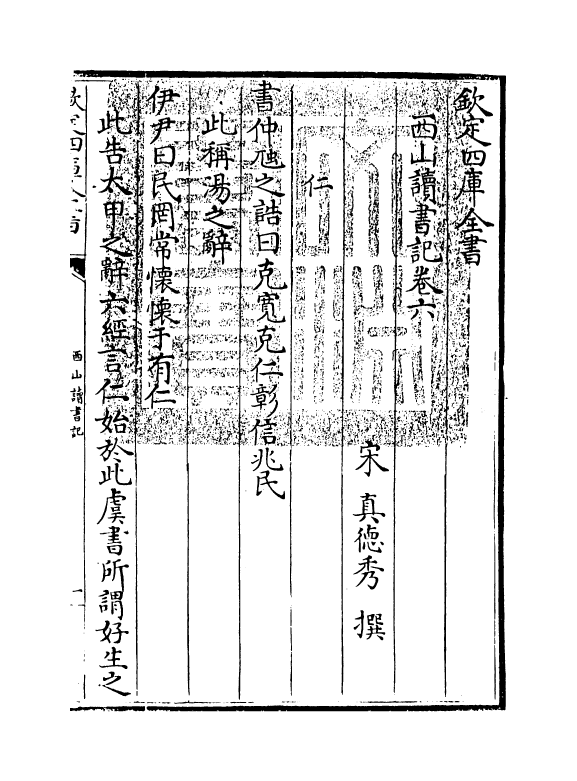 欽定四庫全書
西山讀書記卷六
宋 真德秀 撰
仁
書仲虺之誥曰克寛克仁彰信兆民
此稱湯之辭
伊尹曰民罔常懷懷于有仁
此告太甲之辭六經言仁始於此虞書所謂好生之
欽定四庫全書
西山讀書記